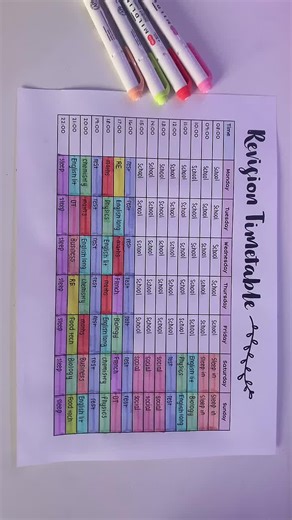 Revision Timetable
Time Monday Tuesday Wednesday Thursday Friday Saturday Sunday
08:00 School School School School School Sleep in Sleep in
09:00 School School School School School Sleep in Sleep in
10:00 School School School School School English lit Biology
11:00 School School School School School Physics English lang
12:00 School School School School School rest rest
13:00 School School School School School social social
14:00 School School School School School social social
15:00 School School School School School social social
16:00 rest rest rest rest rest rest rest
17:00 RE English lang maths French Biology French DT
18:00 maths Physics English lit maths English lang chemistry Physics
19:00 rest rest rest rest rest rest rest
20:00 chemistry maths English lang chemistry Business English lit
21:00 English lit DT Business RE Food tech Biology Food tech
22:00 sleep sleep sleep sleep sleep sleep sleep